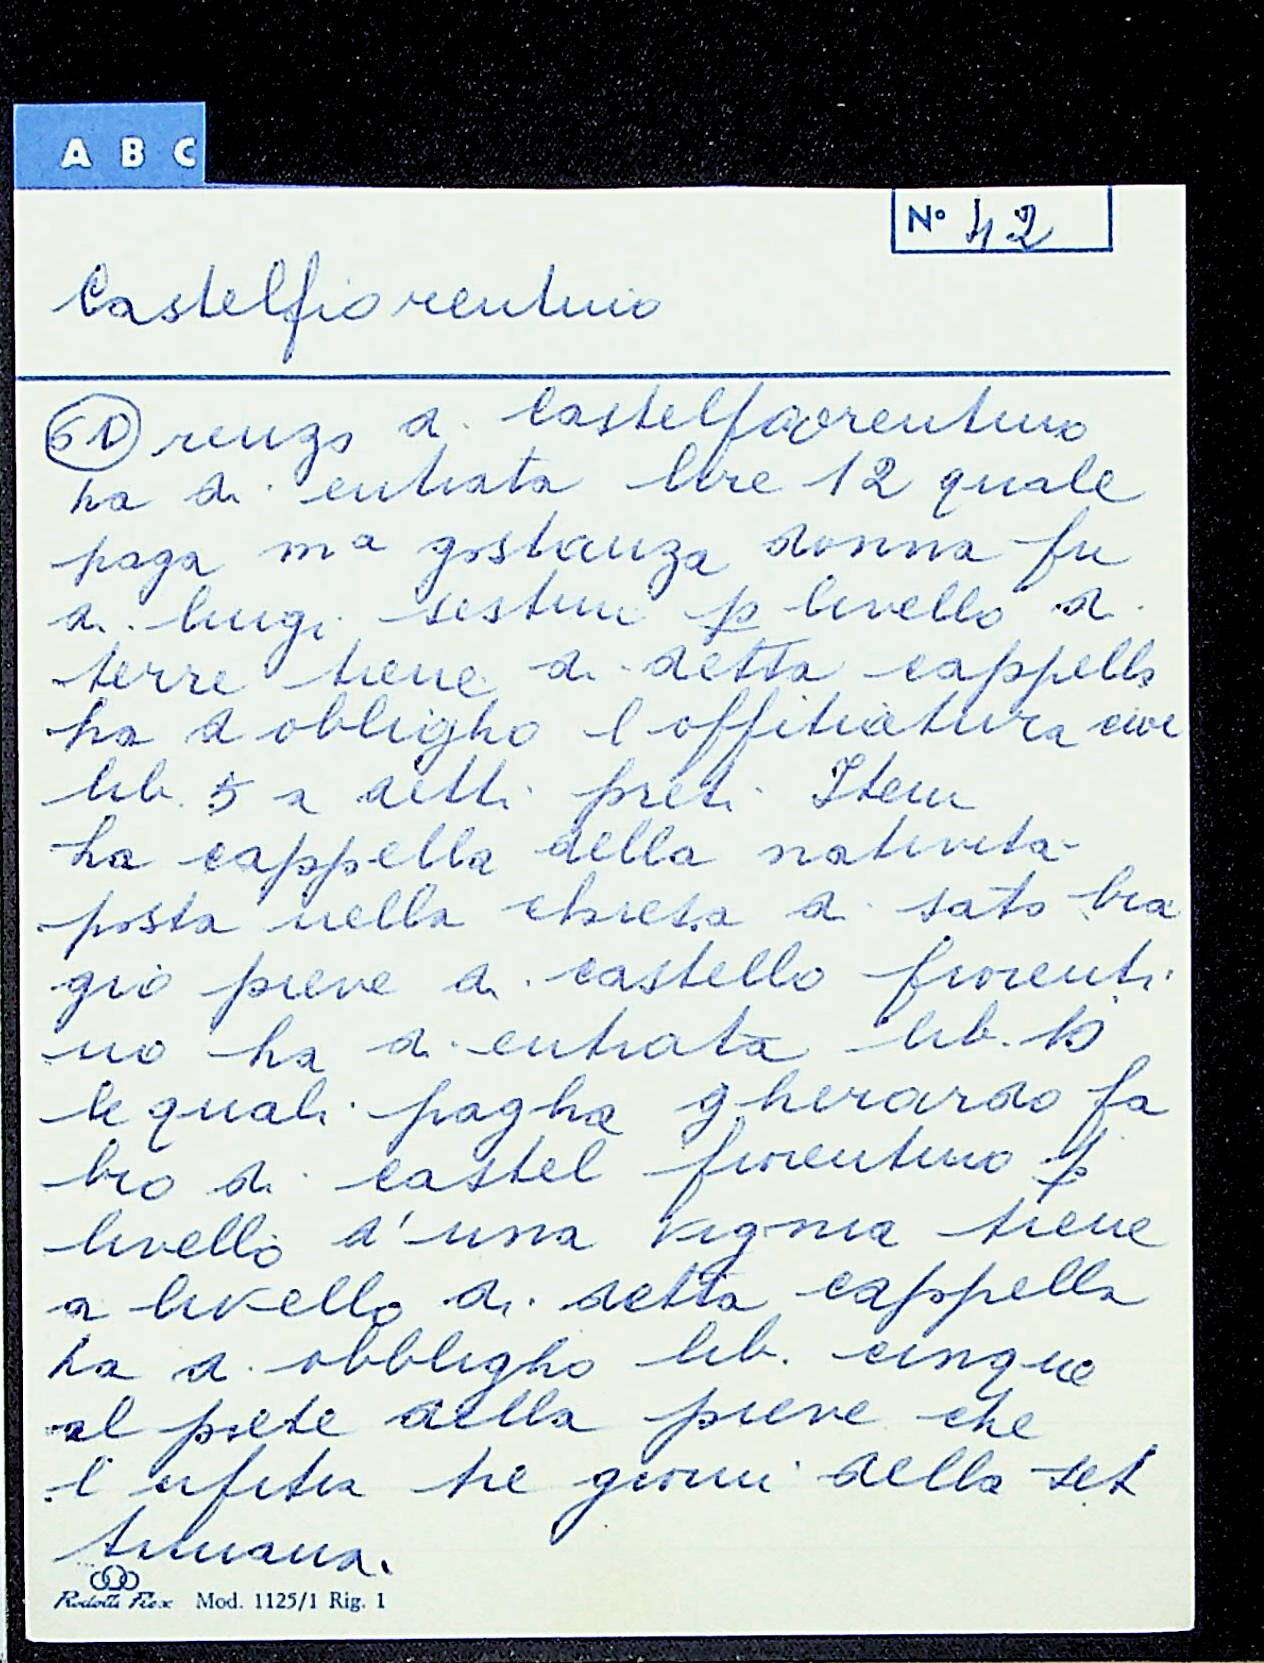 A B C
N° 42
Castelfiorentino
renzo di Castelfiorentino
ha di entrata lire 12 quale
paga mª gostanza donna fu
di luigi sestini p livello di
terre tiene di detta cappella
ha d obbligho l offitiatura cioe
lib. 5 a detti preti. Item
ha cappella della nativita
posta nella chiesa di sato bia
gio pieve di castello fiorenti
no ha di entrata lib. 10
le quali pagha gherardo fa
bro di castel fiorentino p
livello d'una vignia tiene
a livello di detta cappella
ha d. obbligho lib. cinque
al prete della pieve che
l ufitia tre giorni della set
timana.
Mod. 1125/1 Rig. 1